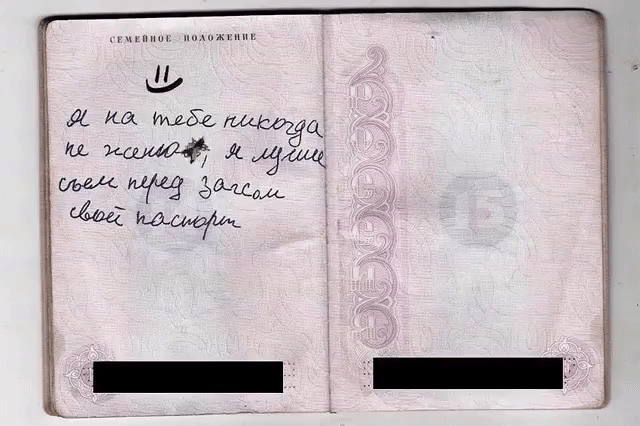 СЕМЕЙНОЕ ПОЛОЖЕНИЕ
Я на тебе никогда
не женю, я лучше
съем перед Загсом
свой паспорт